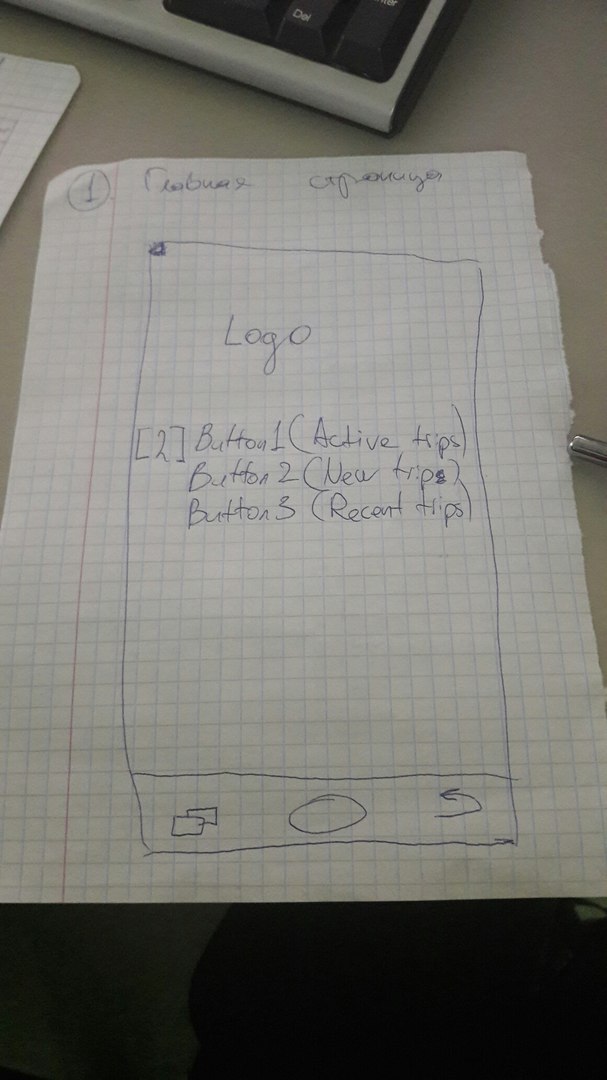 Del
① Главная страница
Logo
[2] Button1 (Active trips)
Button 2 (New trips)
Button3 (Recent trips)